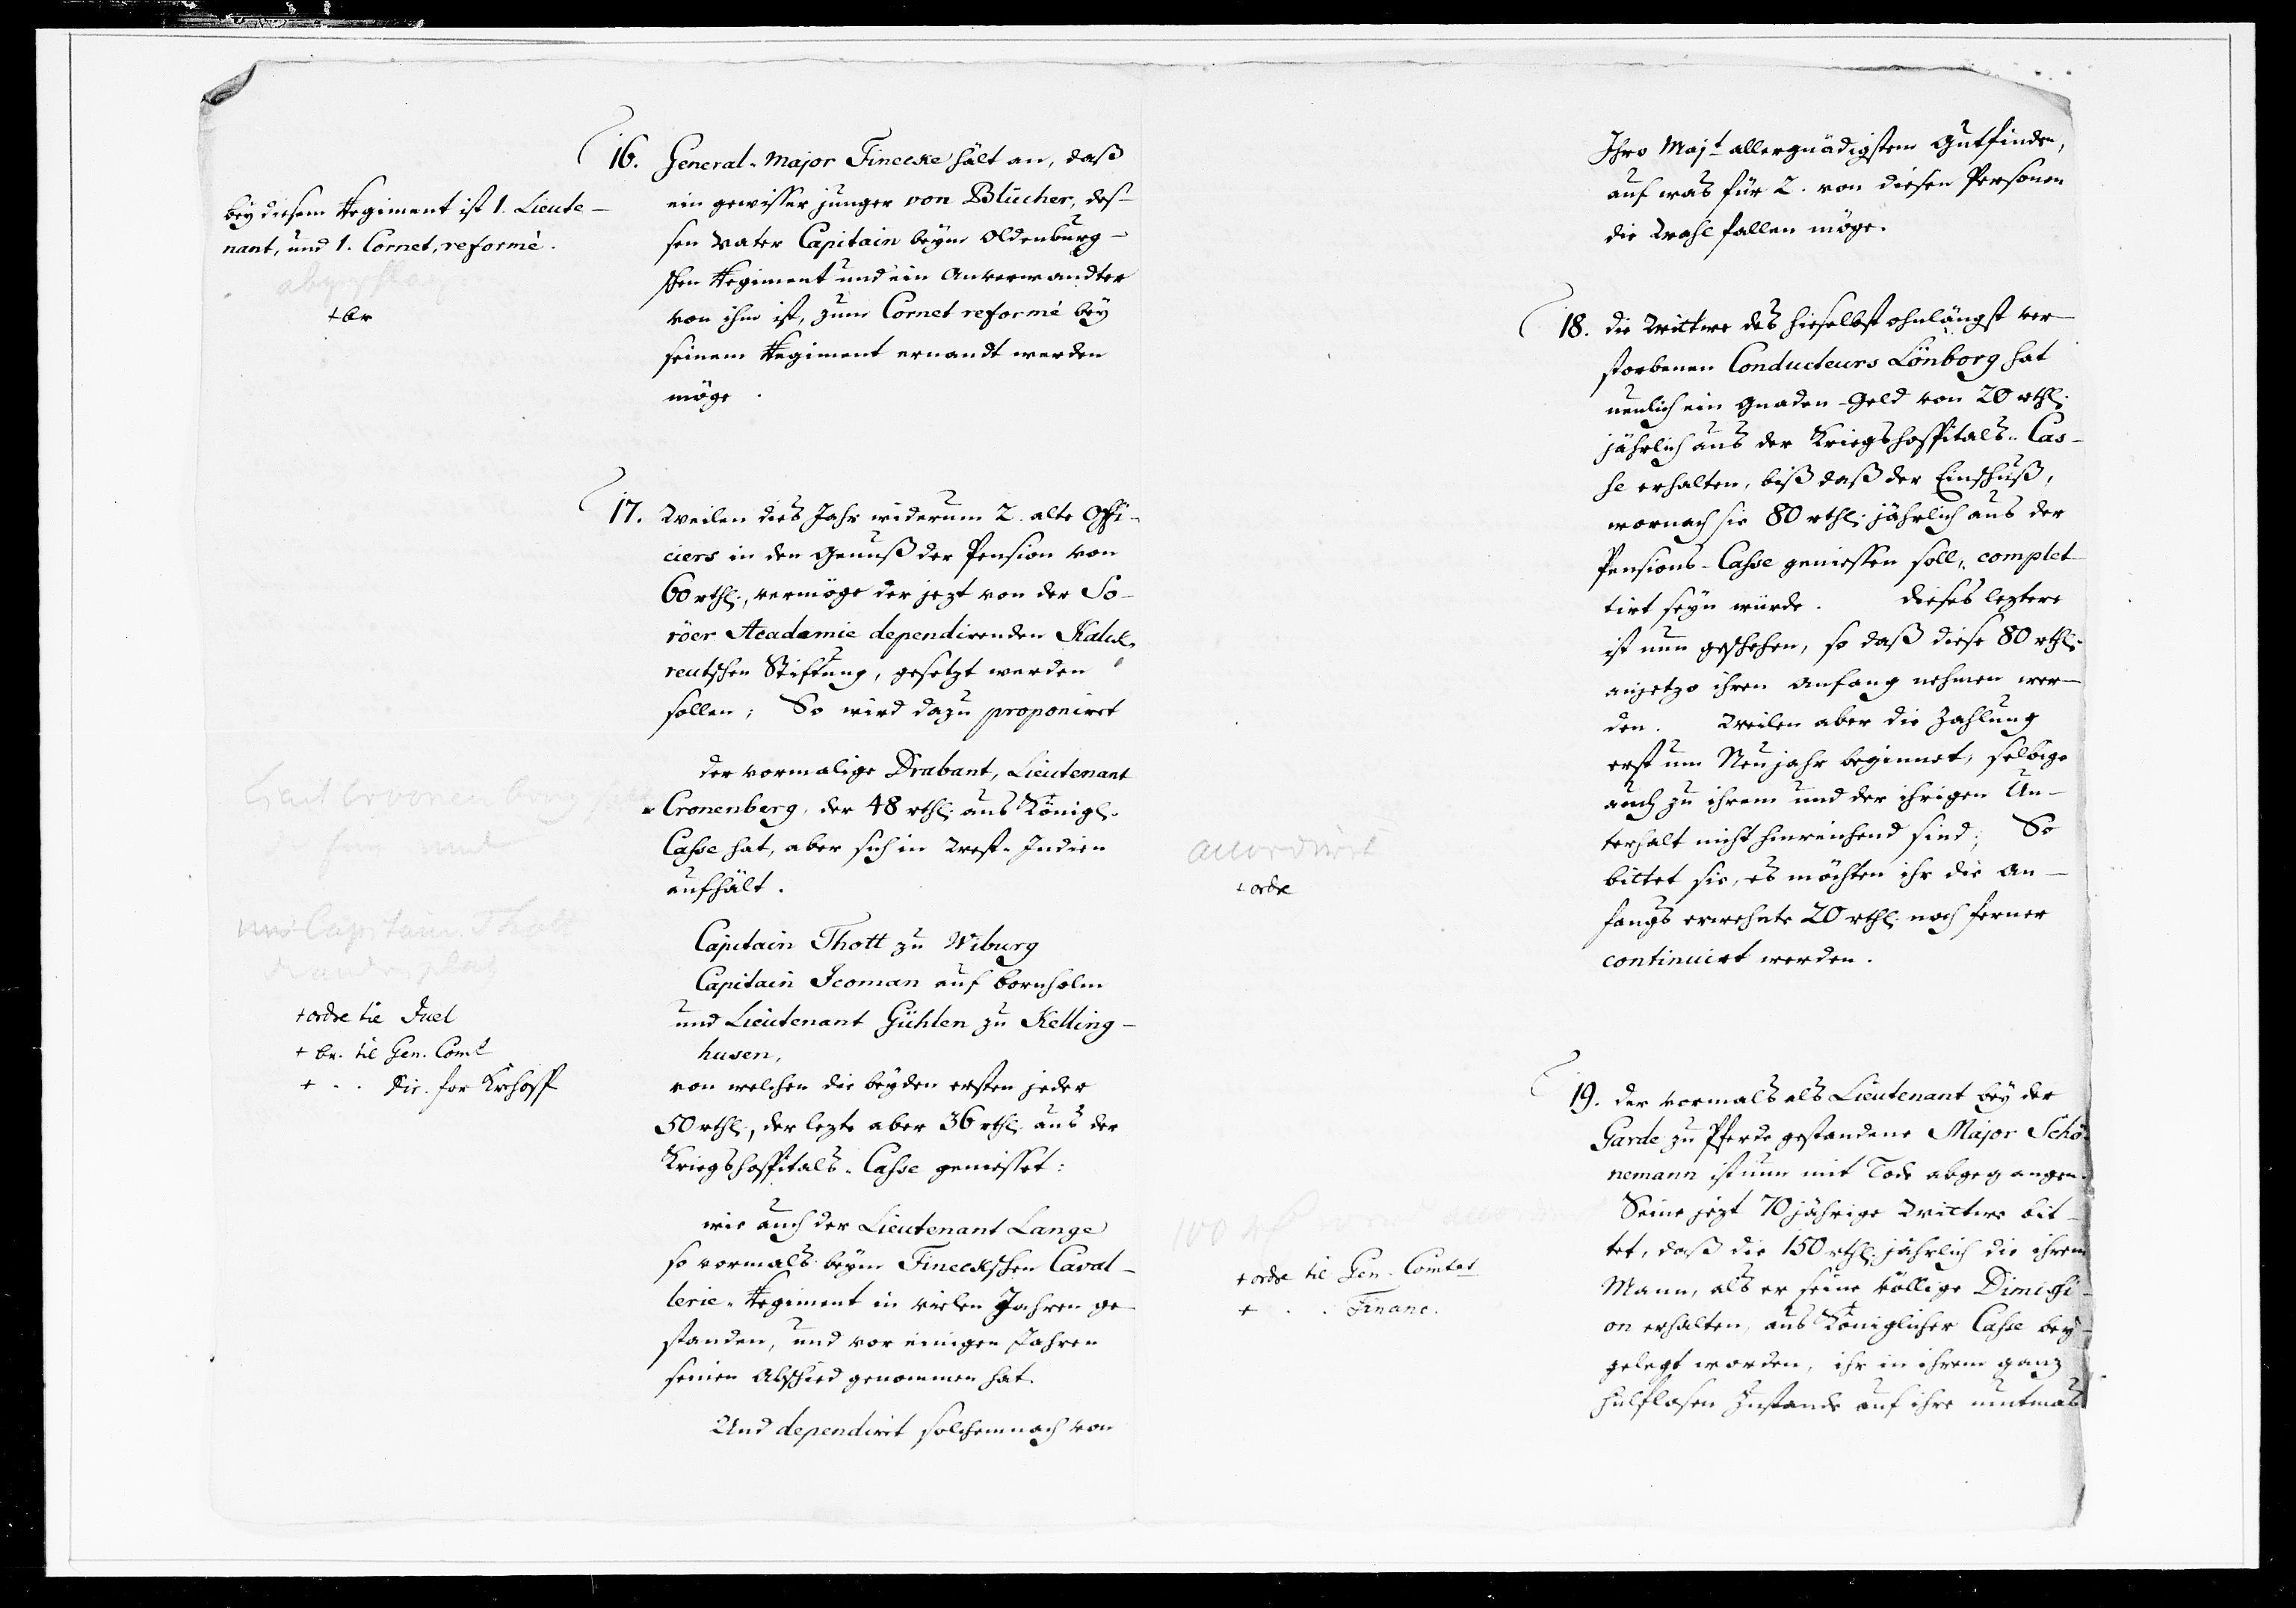 16. General-Major Finecke hält an, daß
ein gewisser junger von Blücher, des-
sen Vater Capitain beym Oldenburg-
schen Regiment und ein Anverwandter
von ihm ist, zum Cornet reformé bey
seinem Regiment ernandt werden
möge.
bey diesem Regiment ist 1. Lieute-
nant, und 1. Cornet, reformè.
+ br
17. Weilen dies Jahr widerum 2. alte Offi-
ciers in den Genuß der Pension von
60 rthl., vermöge der jezt von der So-
röer Academie dependirenden Kalck-
reutschen Stiftung, gesetzt werden
sollen; So wird dazu proponiret
der vormalige Drabant, Lieutenant
Cronenberg, der 48 rthl. aus Königl.
Casse hat, aber sich in West-Indien
aufhält.
Capitain Thott zu Wiburg
Capitain Icoman auf Bornholm
und Lieutenant Gühlen zu Kelling-
husen,
von welchen die beyden ersten jeder
50 rthl., der lezte aber 36 rthl. aus der
Kriegshospitals-Casse geniesset:
wie auch der Lieutenant Lange
so vormals beym Fineckschen Caval-
lerie-Regiment in vielen Jahren ge-
standen, und vor einigen Jahren
seinen Abschied genommen hat.
Und dependirt solchemnach von
Capitain Thott
+ ordre til Juel
+ br. til Gen. Comt
+ - - Dir. for Krhosp
Ihro Majt allergnädigstem Gutfinden,
auf was für 2. von diesen Personen
die Wahl fallen möge.
18. Die Wittwe des hieselbst ohnlängst ver-
storbenen Conducteurs Lönborg hat
neulich ein Gnaden-Geld von 20 rthl.
jährlich aus der Kriegshospitals-Cas-
se erhalten, biß daß der Einschuß,
wornach sie 80 rthl. jährlich aus der
Pensions-Casse geniessen soll, complet-
tirt seyn würde. Dieses leztere
ist nun geschehen, so daß diese 80 rthl.
anjetzo ihren Anfang nehmen wer-
den. Weilen aber die Zahlung
erst um Neujahr beginnet, selbige
auch zu ihrem und der ihrigen Un-
terhalt nicht hinreichend sind; So
bittet sie, es möchten ihr die An-
fangs erwehnte 20 rthl. noch ferner
continuirt werden.
accordirt
+ ordre
19. Der vormals als Lieutenant bey der
Garde zu Pferde gestandene Major Schö-
nemann ist nun mit Tode abgegangen.
Seine jezt 70jährige Wittwe bit-
tet, daß die 150 rthl. jährlich die ihrem
Mann, als er seine völlige Dimissi-
on erhalten, aus Königlicher Casse bey-
gelegt worden, ihr in ihrem ganz
hülflosen Zustande auf ihre mutmas
100
+ ordre til Gen. Comtet
+ - - Financ.